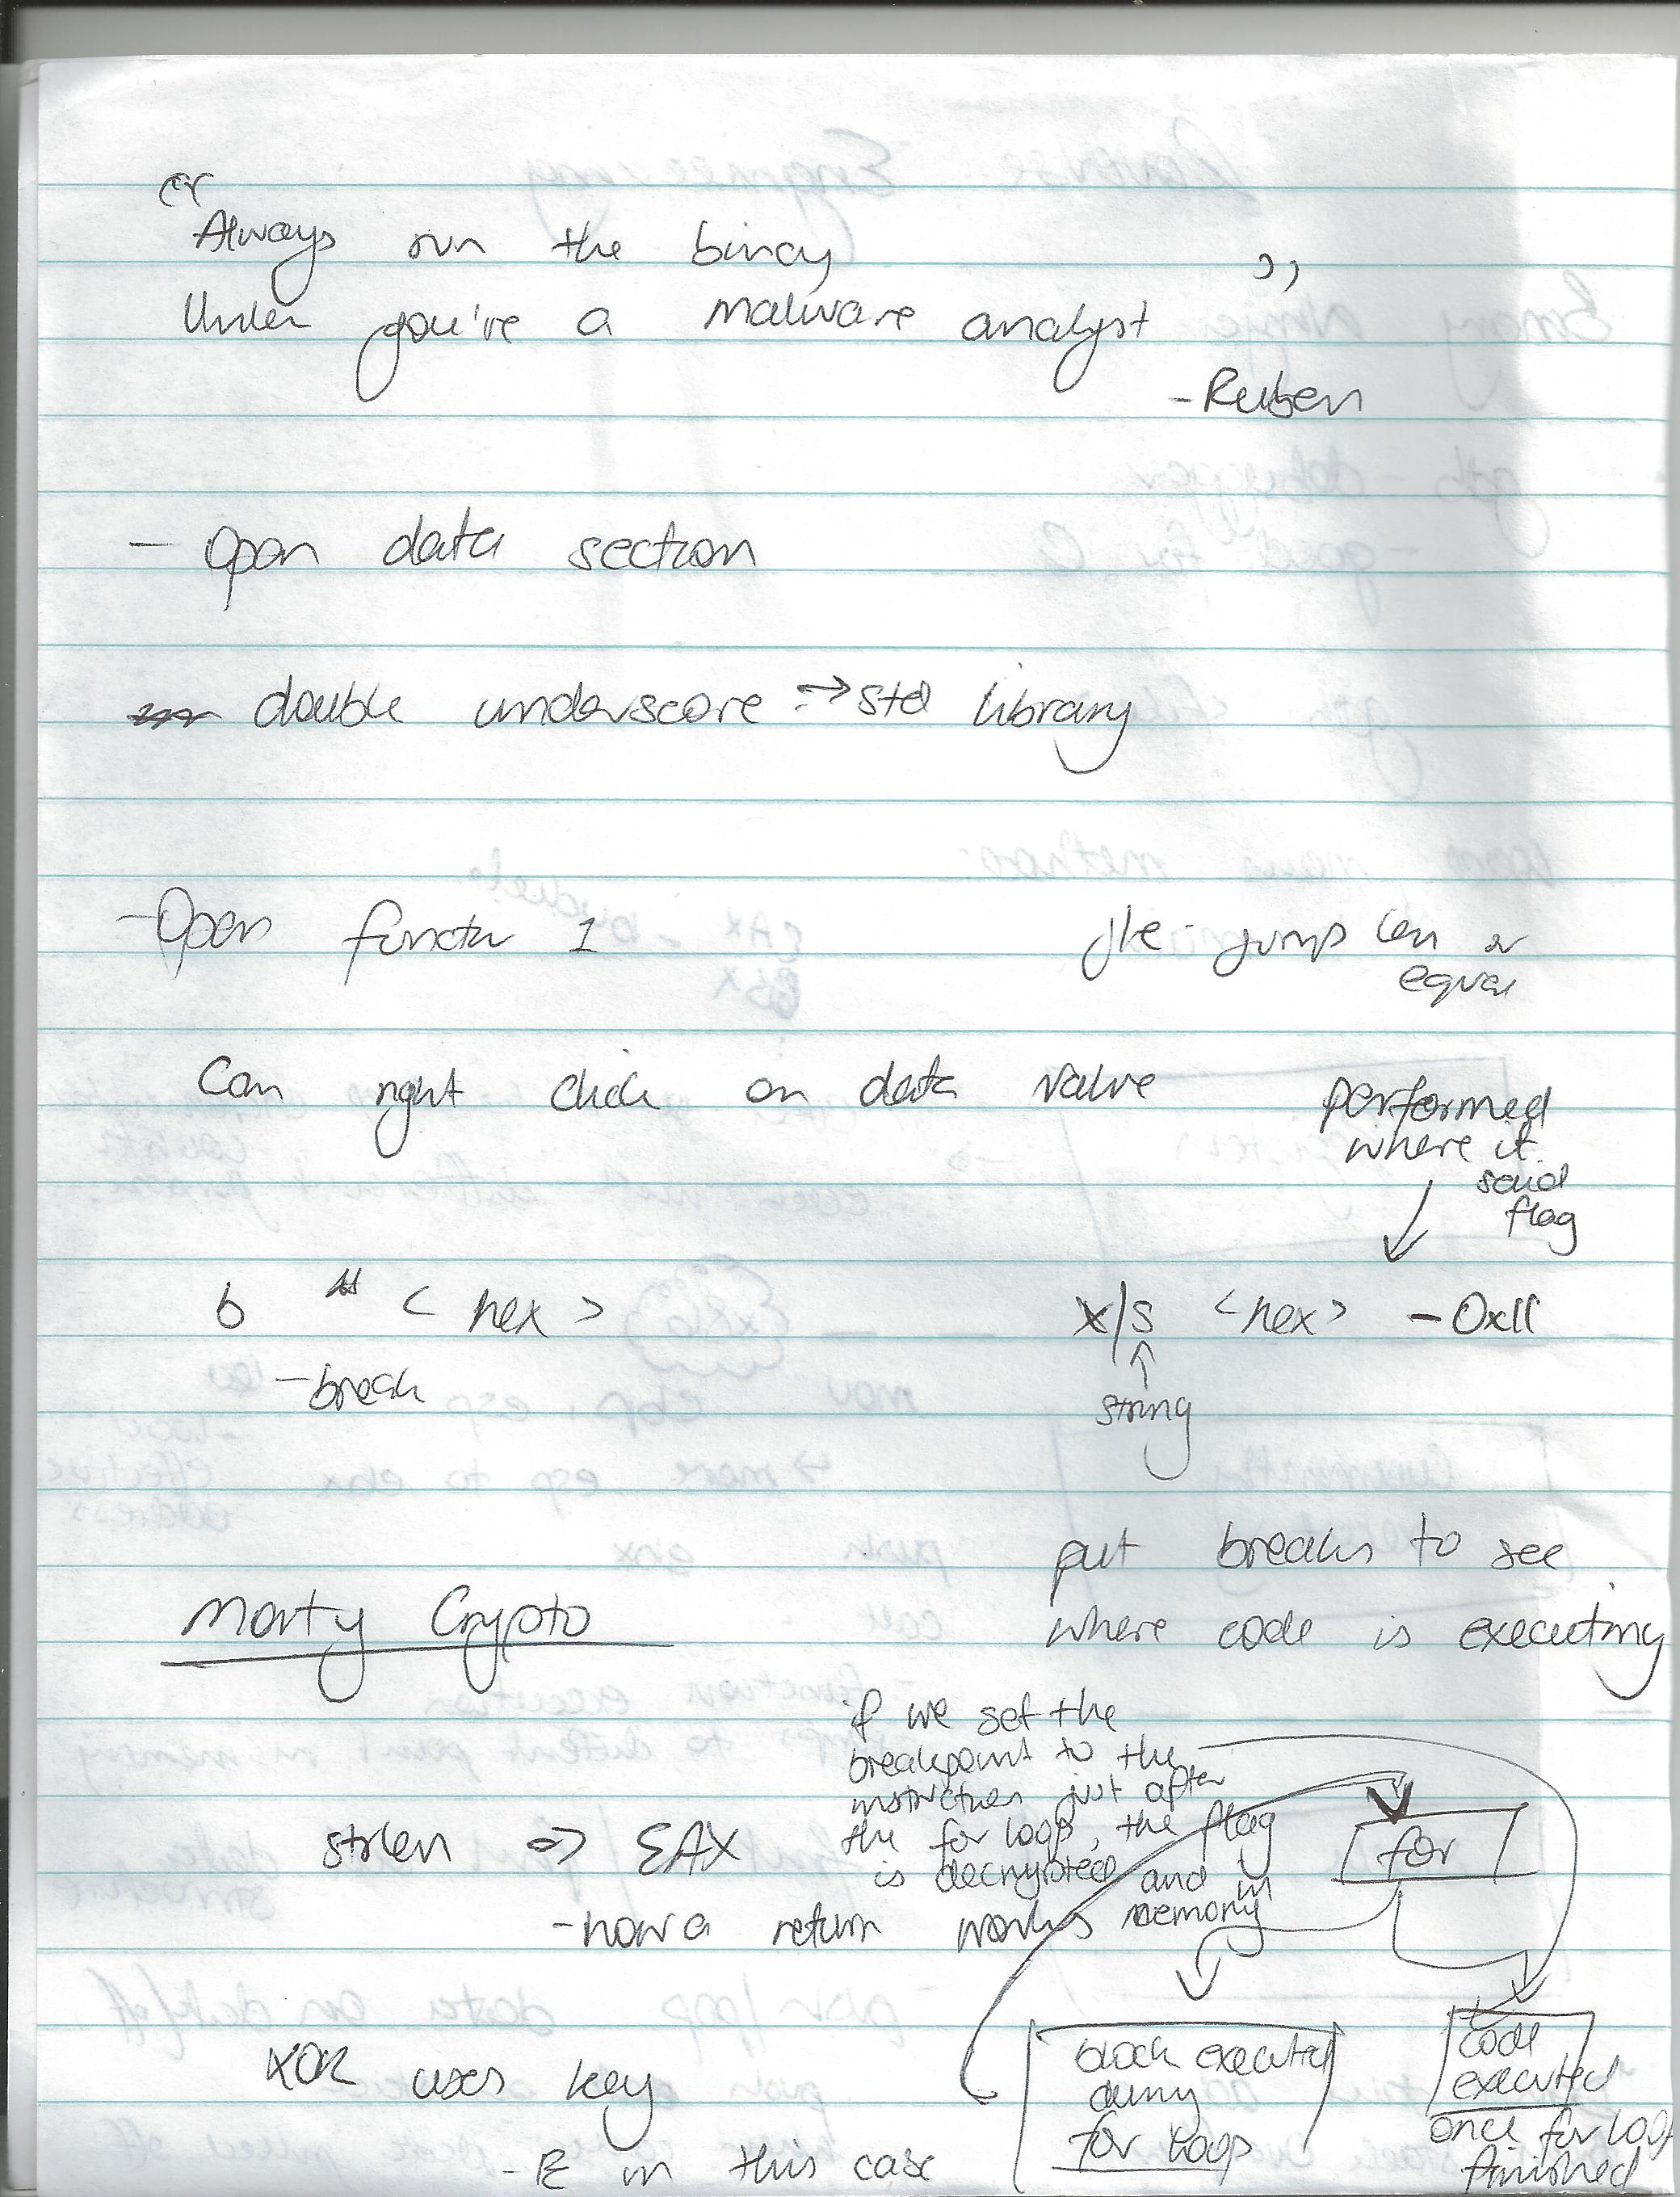 "Always run the binary
Unless you're a malware analyst"
-Ruben
- Open data section
double underscore → std library
- Open function 1
jle - jump less or
equal
Can right click on data value
performed
where it
said
flag
b * < hex >
- break
x/s <hex> - 0x11
string
put breaks to see
where code is executing
Morty Crypto
if we set the
breakpoint to the
instruction just after
the for loop, the flag
is decrypted and in
memory
for
strlen => EAX
- how a return works
block executed
during
for loop
code
executed
once for loop
finished
XOR uses key
- E in this case